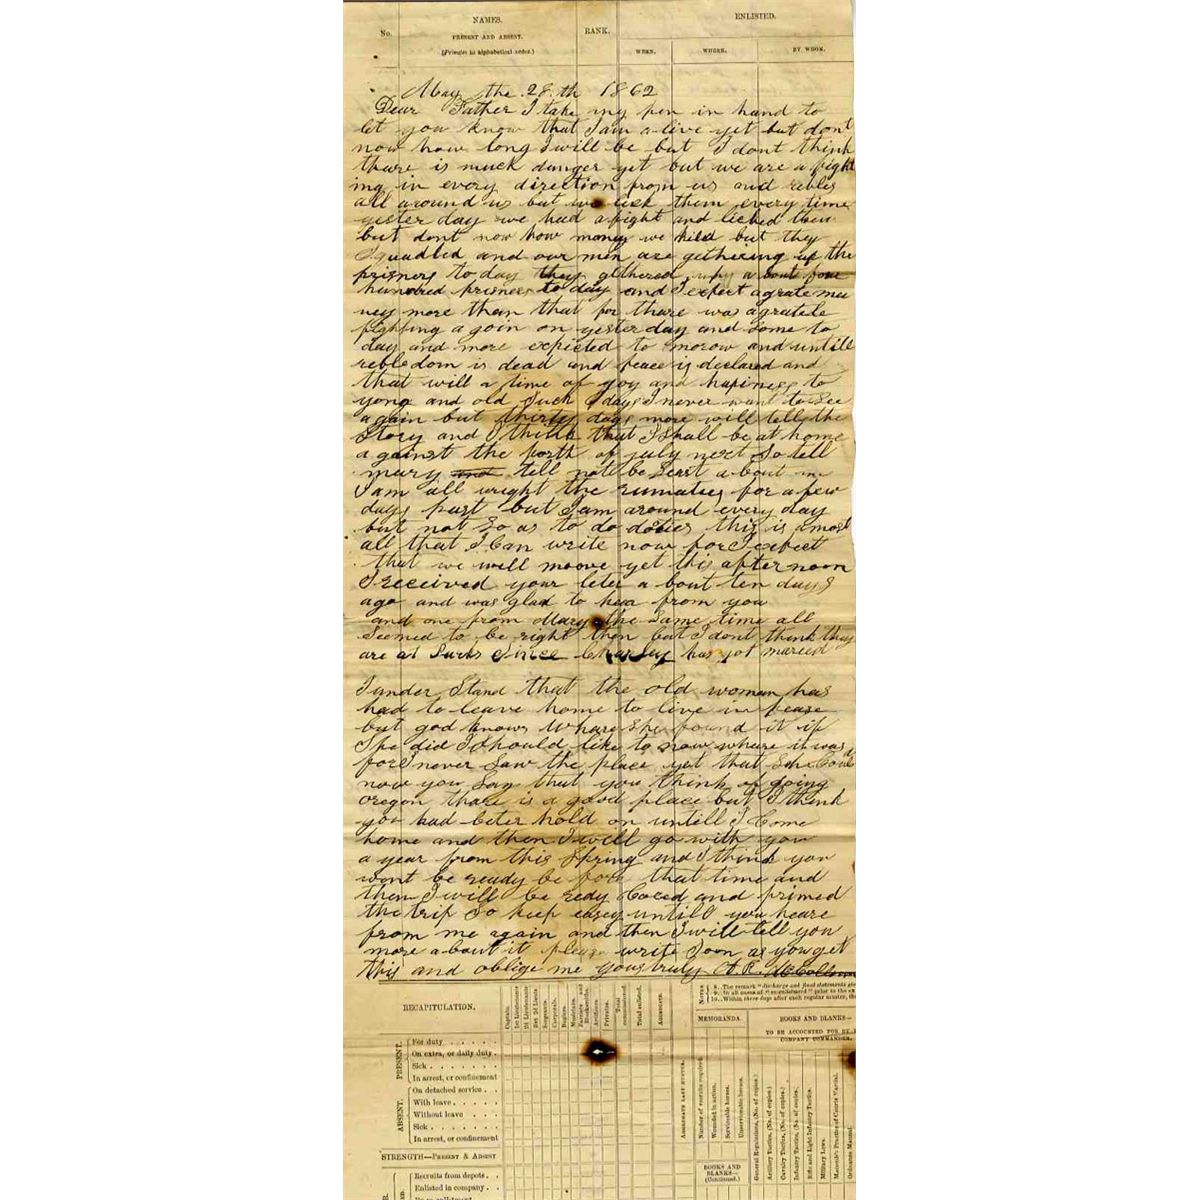 No.
NAMES.
PRESENT AND ABSENT.
(Privates in alphabetical order.)
RANK.
ENLISTED.
WHEN.
WHERE.
BY WHOM.
May the 28.th 1862
Dear Father I take my pen in hand to
let you know that I am a live yet but dont
now how long I will be but I dont think
thare is much danger yet but we are a fight
ing in every direction from us and rebles
all around us but we lick them every time
yester day we had a fight and licked them
but dont now how money we kild but they
Squadled and our men are gethering up the
prisners to day they gethered up a bout four
hundred prisners to day and I expect a grate me
ney more than that for thare was a grate
fighting a goin on yester day and some to
day and more expected to morow and untill
rebledom is dead and peace is declared and
that will a time of goy and hapiness to
yong and old Such days I never want to See
again but thirty days more will tell the
Story and I think that I Shall be at home
a gainst the forth of july next So tell
mary tell not be Scart a bout me
I am all wright the rumaties for a few
days past but I am around every day
but not So as to do doties this is amost
all that I Can write now for I expect
that we will moove yet this after noon
I received your leter a bout ten days
ago and was glad to hear from you
and one from Mary the Same time all
Seemed to be right then but I dont think they
are at Since Charley has got maried
I under Stand that the old woman has
had to leave home to live in pease
but god knows Whare She found it if
She did I Should like to now where it was
for I never Saw the place yet that She Could
now you Say that you think of going
oregon thare is a good place but I think
you had beter hold on untill I Come
home and then I will go with you
a year from this Spring and I think you
wont be ready be fore that time and
then I will be redy and primed
the trip So keep easey untill you heare
from me again and then I will tell you
more a bout it please write Soon as you get
this and oblige me yours truly A. R. McCollum
RECAPITULATION.
Captain.
1st Lieutenants
2d Lieutenants
Sergeants.
Corporals.
Buglers.
Musicians.
Farriers and Blacksmiths.
Artificers.
Privates.
Total commissioned.
Total enlisted.
AGGREGATE.
AGGREGATE LAST MUSTER.
PRESENT.
For duty
On extra, or daily duty
Sick
In arrest, or confinement
ABSENT.
On detached service
With leave
Without leave
Sick
In arrest, or confinement
STRENGTH—PRESENT & ABSENT
Recruits from depots
Enlisted in company
NOTES
8. The remark "discharge and final statements
9. In all cases of "re-enlistment" prior to the
10. Within three days after each regular muster, the
MEMORANDA.
Number of recruits required
Wounded in action.
Serviceable horses.
Unserviceable horses.
BOOKS AND BLANKS—
(Continued.)
BOOKS AND BLANKS—
TO BE ACCOUNTED FOR BY
COMPANY COMMANDER.
General Regulations, (No. of copies.)
Artillery Tactics, (No. of copies.)
Cavalry Tactics, (No. of copies.)
Infantry Tactics, (No. of copies.)
Rifle and Light Infantry Tactics.
Military Laws.
Macomb's Practice of Courts Martial.
Ordnance Manual.